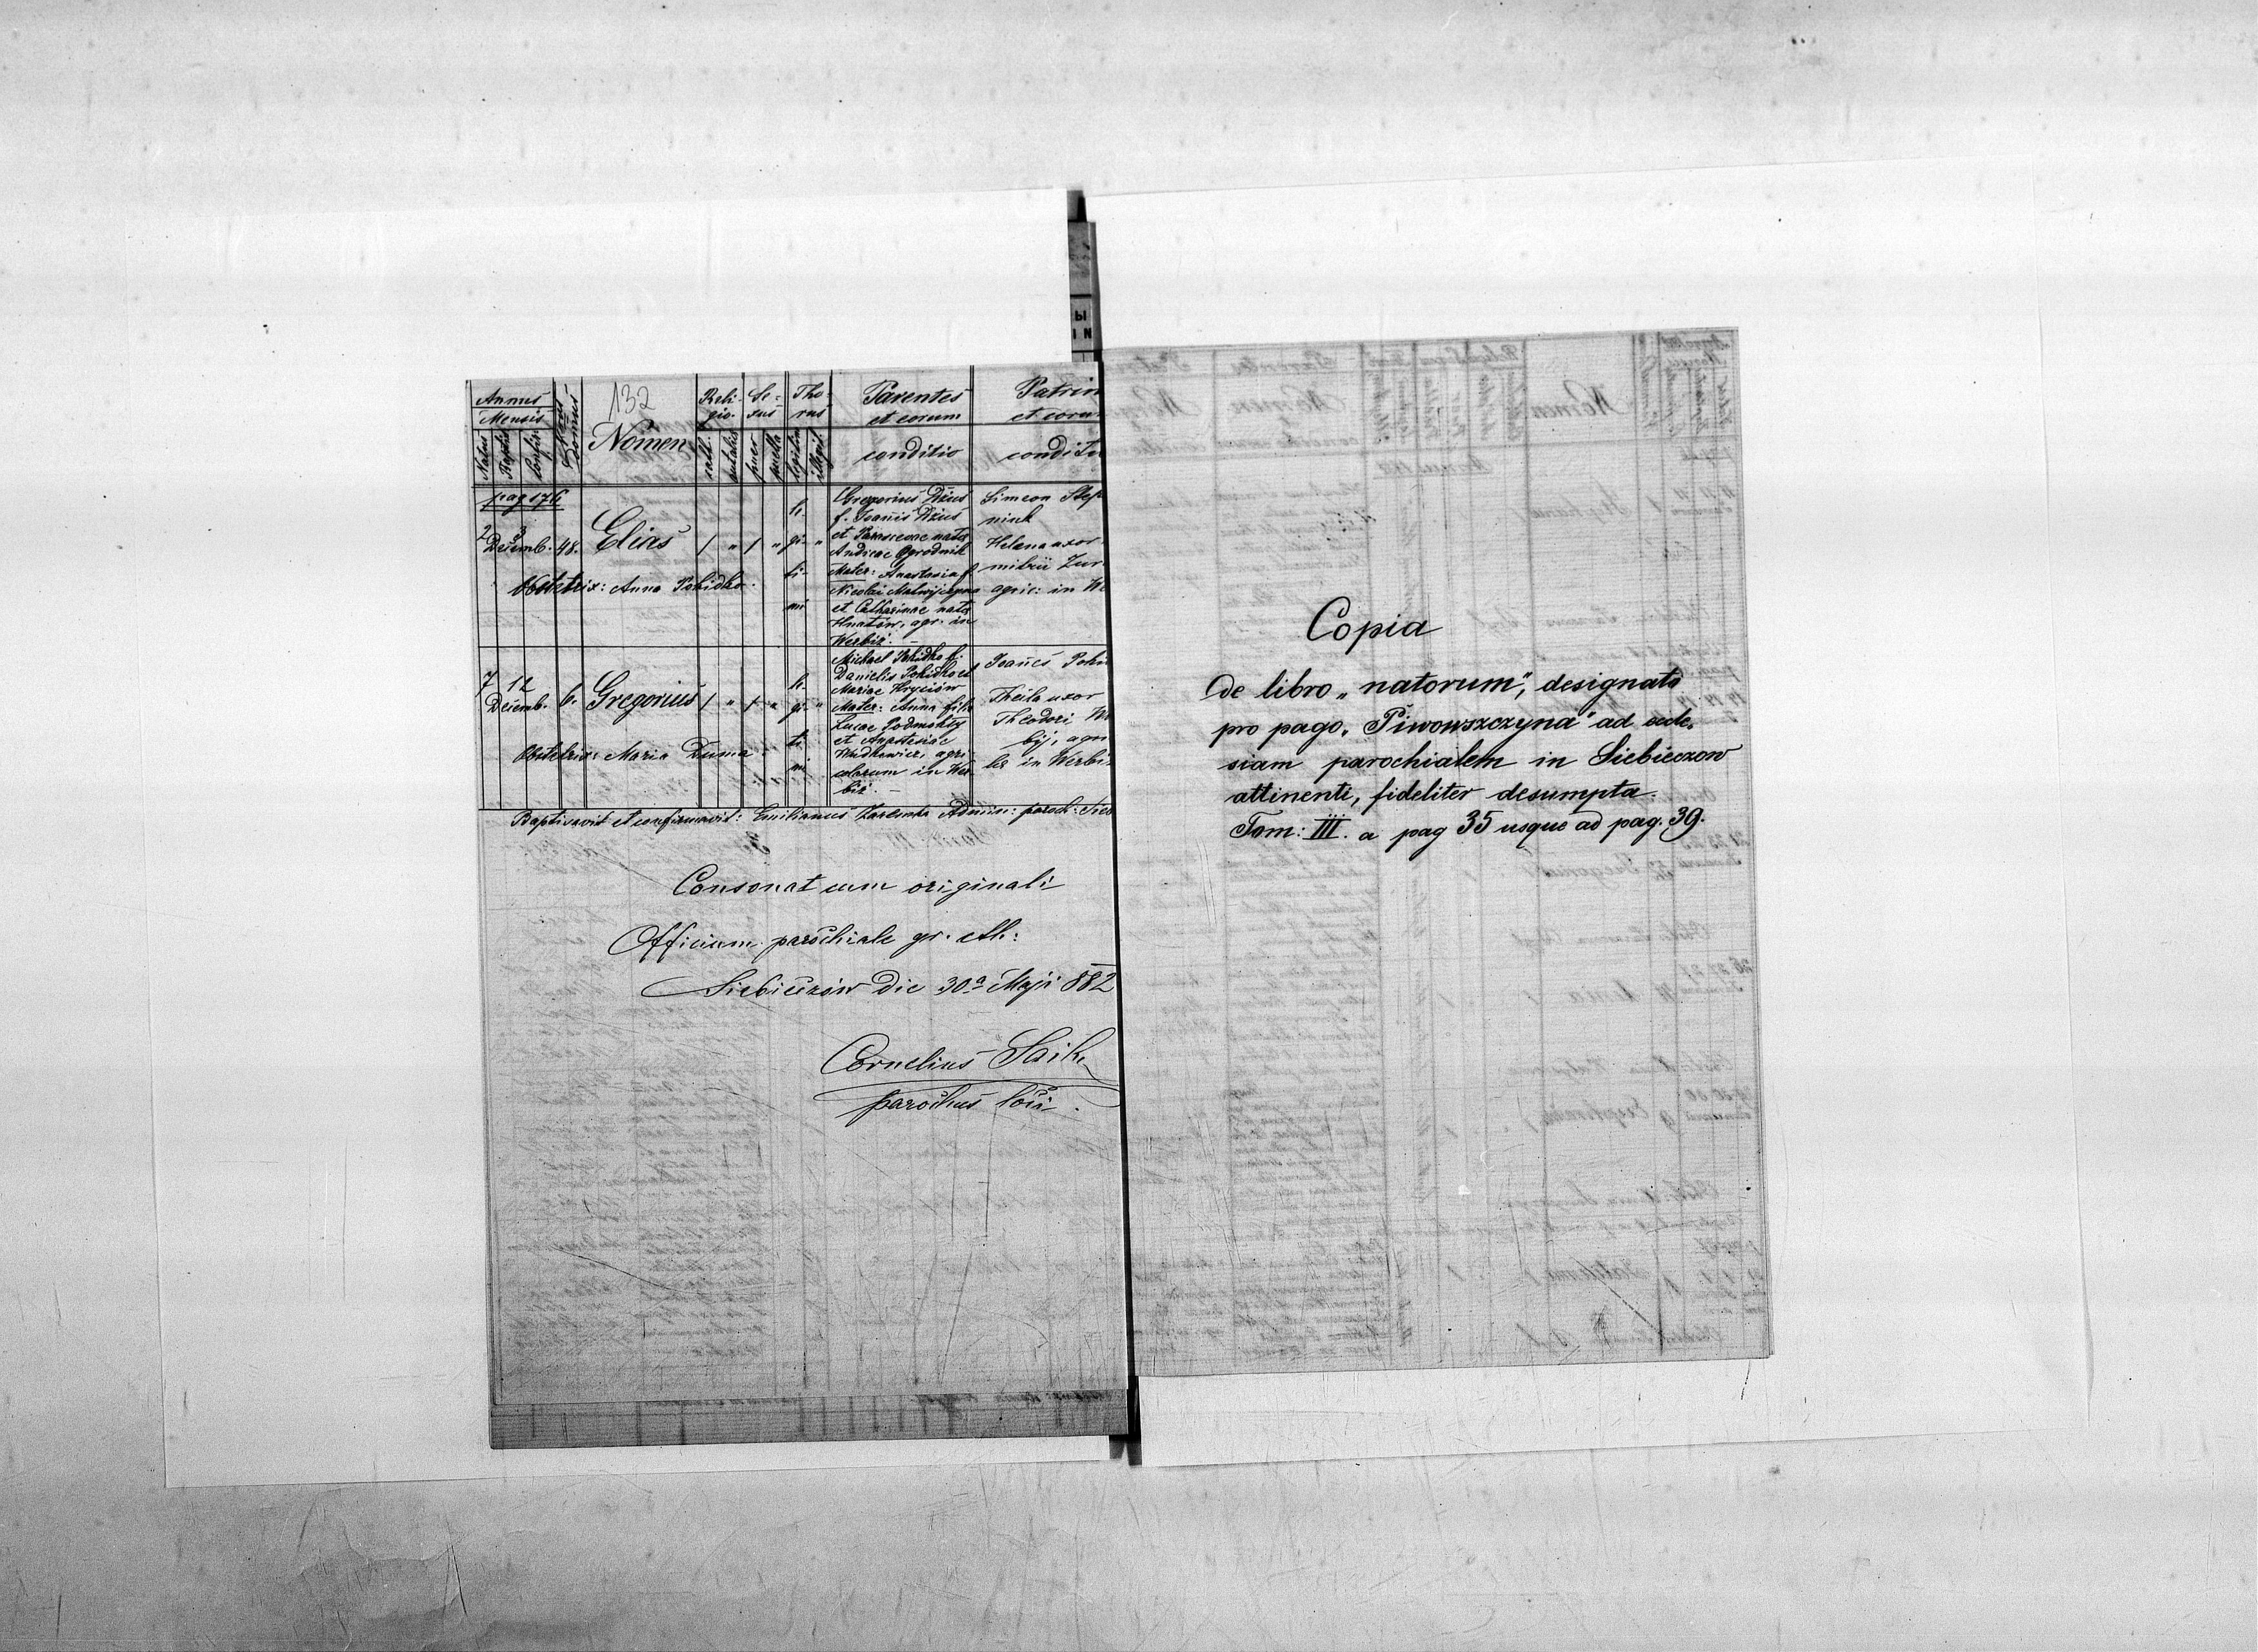 132
Annus
Mensis
Natus
Baptis
Confir
Nrus Domus
Nomen
Reli-
gio.
cath.
aut alia
Se-
xus
puer
puella
Tho-
rus
legitim
illegit
Parentes
et eorum
conditio
Patrin
et eoru
conditi
pag 176
2 3
Decemb. 48. Elias 1 " 1 " le- gi- ti- mi "
Gregorius Dżus
f. Joannis Dżus
et Parascevae nata
Andreae Ogrodnik
Mater: Anastasia f.
Nicolai
et Catharinae nata
Hnatów, agr. in
Werbiż. –
Simeon Step
niuk
Helena uxor
mitrii Zur
agric: in We
Obstetrix: Anna Pohidko.
7 12
Decemb. 6. Gregorius 1 " 1 " le- gi- ti- mi "
Michael Pohidko f.
Danielis Pohidko et
Mariae Hryciów
Mater: Anna filia
Lucae
et Anastasiae
agri
colarum in Wer
biż. –
Joannes Pohi
Theila uxor
Theodori We
bij, agri
lae in Werbi
Obstetrix: Maria Duma
Baptisavit et confirmavit: Emilianus Zaremba Admin: paroch: Sieb
Consonat cum originali
Officium parochiale gr. cth:
Siebieczów die 30a Maji 882
Cornelius Saik
parochus loci.
Copia
de libro „natorum", designato
pro pago „Piwowszczyna" ad eccle-
siam parochialem in Siebieczow
attinenti, fideliter desumpta.
Tom: III. a pag 35 usque ad pag. 39.